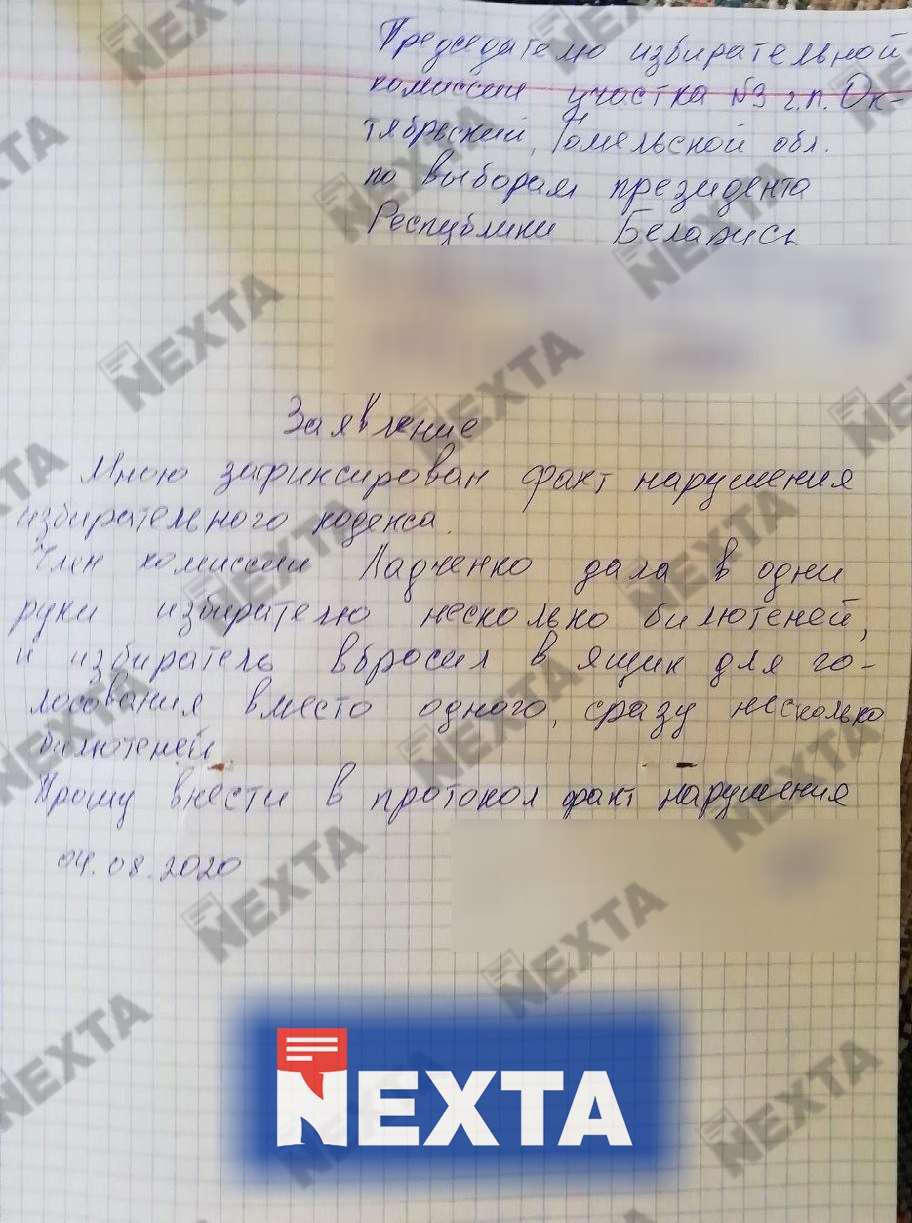 Председателю избирательной
комиссии участка №3 г.п. Ок-
тябрьский, Гомельской обл.
по выборам президента
Республики Беларись
Заявление
Мною зафиксирован факт нарушения
избирательного кодекса.
Член комиссии Ладченко дала в одни
руки избирателю несколько билютеней,
и избиратель вбросил в ящик для го-
лосования вместо одного, сразу несколько
билютеней.
Прошу внести в протокол факт нарушения
04.08.2020
NEXTA